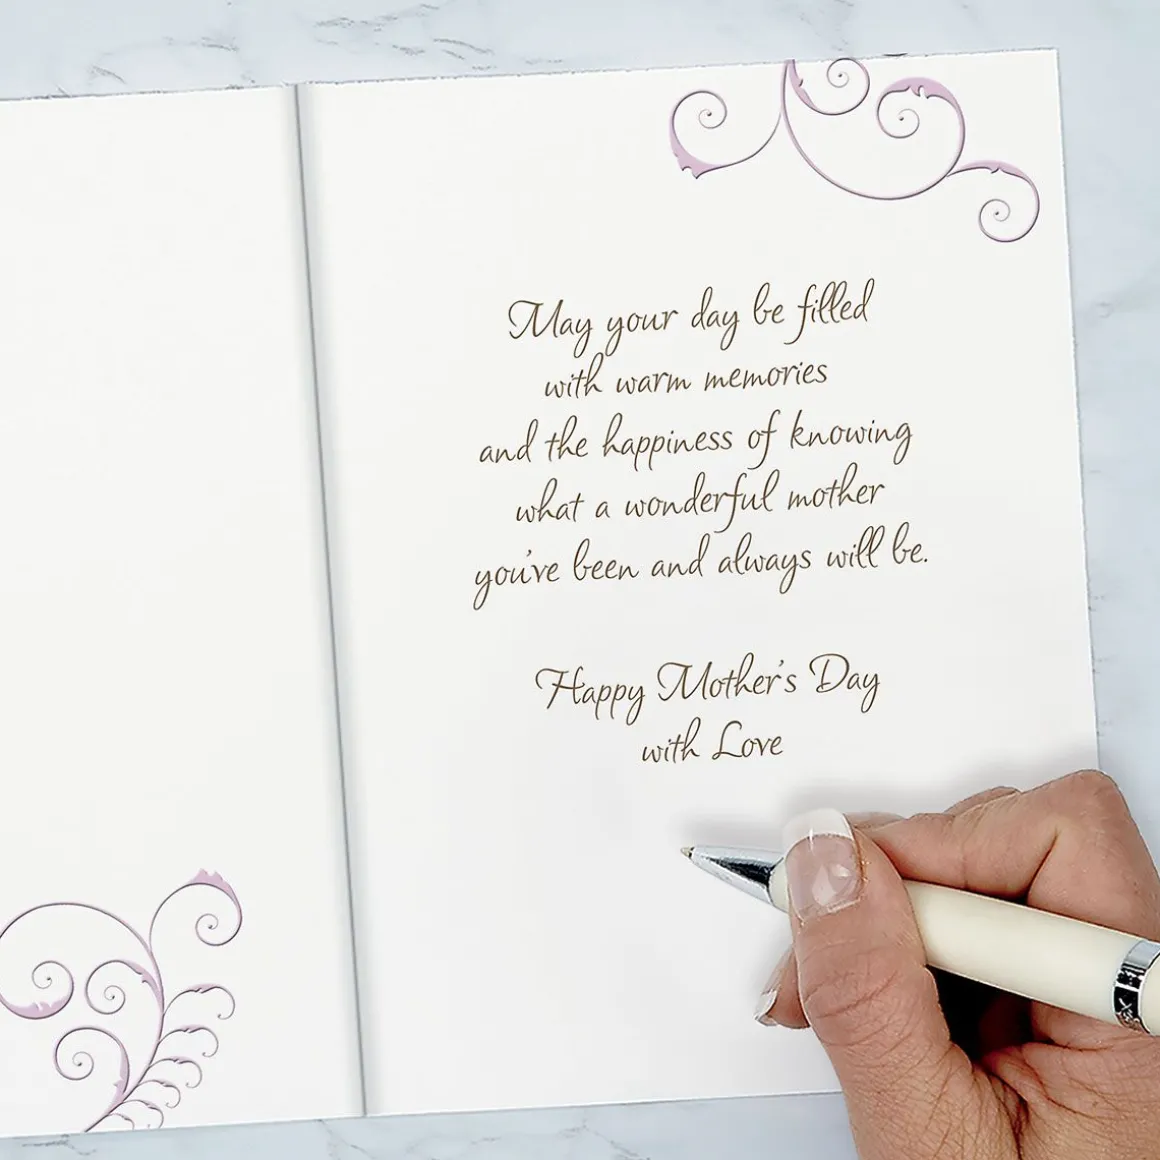 May your day be filled
with warm memories
and the happiness of knowing
what a wonderful mother
you've been and always will be.
Happy Mother's Day
with Love